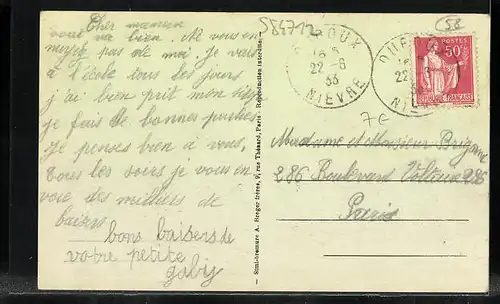 Cher maman
vous va bien. Ne vous en
nuyez pas de moi. Je vais
à l'école tous les jours
j'ai bien prit mon
je fais de bonnes parties
je penses bien à vous,
Tous les soirs je vous en
voie des milliers de
baisers
bons baisers de
votre petite
gaby
584712
58
OUROUX
22-6
33
NIEVRE
OUR
22
NI
POSTES
50c
REPUBLIQUE FRANÇAISE
7E
Madame et Monsieur
286 Boulevard Voltaire 286
Paris
Simili-bromure A. Breger frères, 9, rue Thénard, Paris - Reproduction interdite